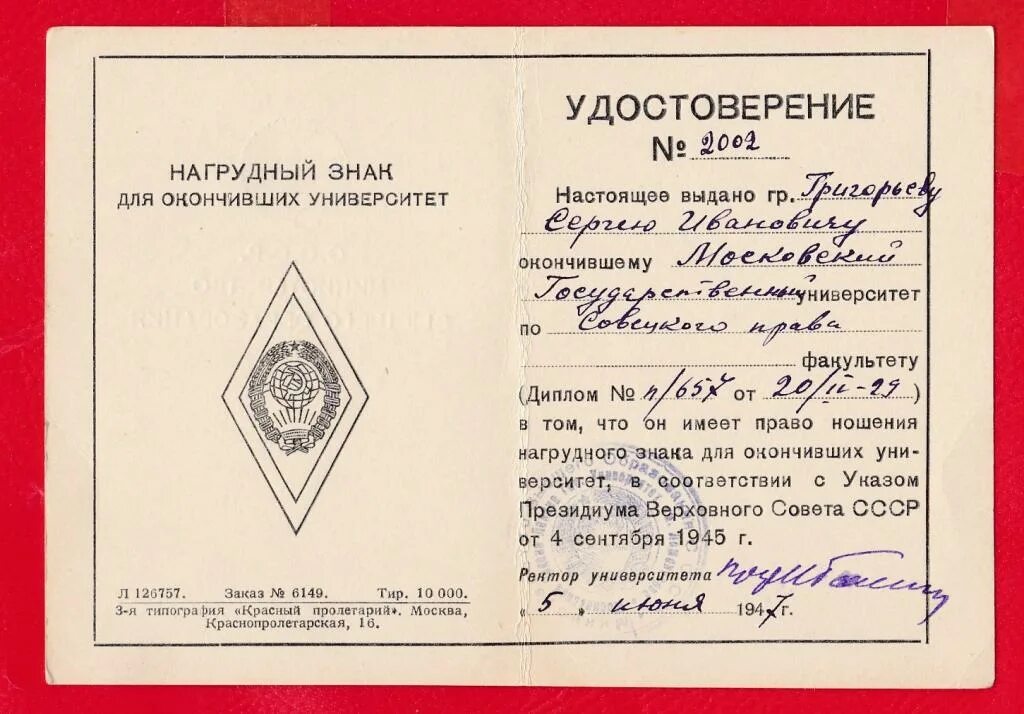 НАГРУДНЫЙ ЗНАК
ДЛЯ ОКОНЧИВШИХ УНИВЕРСИТЕТ
Л 126757. Заказ № 6149. Тир. 10 000.
3-я типография «Красный пролетарий». Москва,
Краснопролетарская, 16.
УДОСТОВЕРЕНИЕ
№ 2002
Настоящее выдано гр. Григорьеву
Сергею Ивановичу
окончившему Московский
Государственный университет
по Совецкого права
факультету
(Диплом № п/657 от 20/II-29)
в том, что он имеет право ношения
нагрудного знака для окончивших уни-
верситет, в соответствии с Указом
Президиума Верховного Совета СССР
от 4 сентября 1945 г.
Ректор университета
«5» июня 1947г.